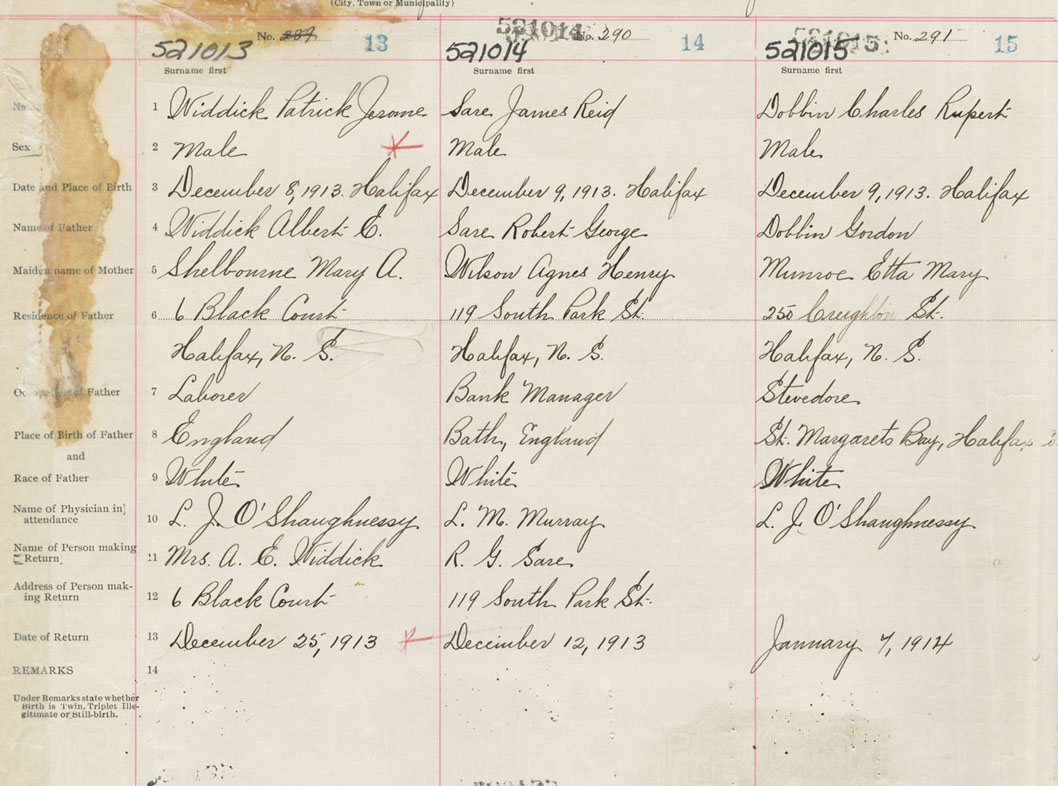 (City, Town or Municipality)
521013 No. 289 13
521014 No. 290 14
521015 No. 291 15
Surname first Surname first Surname first
1 Widdick Patrick Jerome Sare James Reid Dobbin Charles Rupert
Sex 2 Male Male Male
Date and Place of Birth 3 December 8, 1913. Halifax December 9, 1913. Halifax December 9, 1913. Halifax
Name of Father 4 Widdick Albert E. Sare Robert George Dobbin Gordon
Maiden name of Mother 5 Shelbourne Mary A. Wilson Agnes Henry Munroe Etta Mary
Residence of Father 6 6 Black Court 119 South Park St. 250 Creighton St.
Halifax, N. S. Halifax, N. S. Halifax, N. S.
Occupation of Father 7 Laborer Bank Manager Stevedore
Place of Birth of Father 8 England Bath, England St. Margarets Bay, Halifax Co
and
Race of Father 9 White White White
Name of Physician in attendance 10 L. J. O'Shaughnessy L. M. Murray L. J. O'Shaughnessy
Name of Person making Return 11 Mrs. A. E. Widdick R. G. Sare
Address of Person making Return 12 6 Black Court 119 South Park St.
Date of Return 13 December 25, 1913 December 12, 1913 January 7, 1914
REMARKS 14
Under Remarks state whether
Birth is Twin, Triplet Ille-
gitimate or Still-birth.